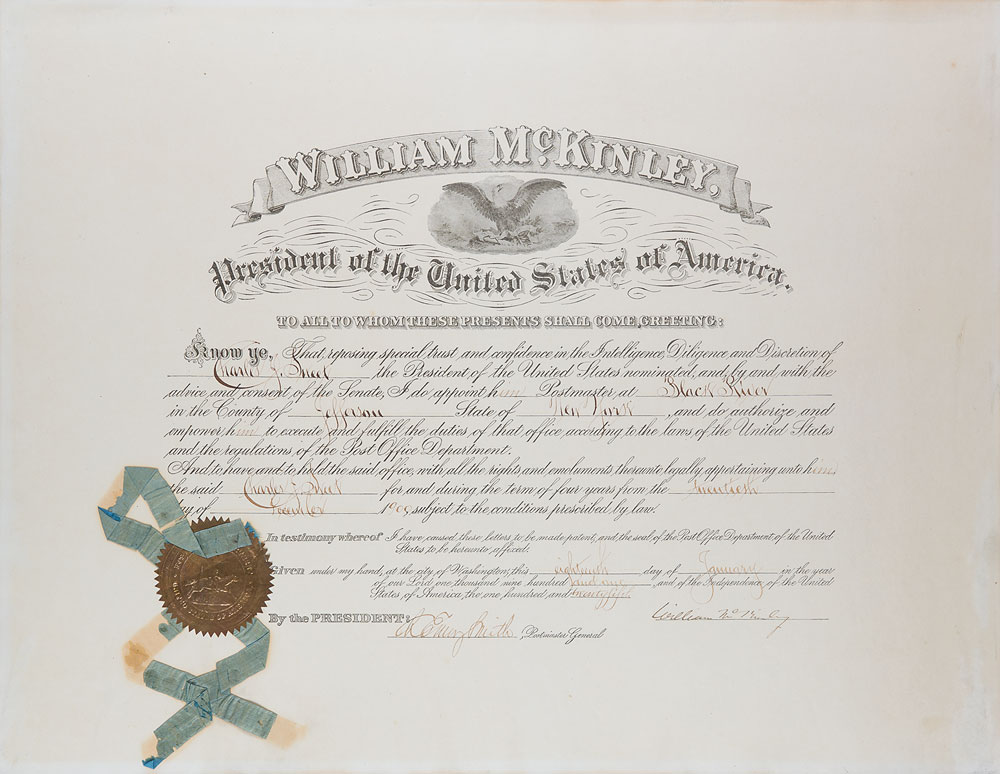 WILLIAM McKINLEY,
President of the United States of America.
TO ALL TO WHOM THESE PRESENTS SHALL COME, GREETING:
Know ye, That, reposing special trust and confidence in the Intelligence, Diligence and Discretion of
Charles J. the President of the United States nominated, and, by and with the
advice and consent of the Senate, I do appoint him Postmaster at Black River
in the County of Jefferson State of New York, and do authorize and
empower him to execute and fulfill the duties of that office according to the laws of the United States
and the regulations of the Post Office Department.
And to have and to hold the said office, with all the rights and emoluments thereunto legally appertaining unto him
the said Charles J. for and during the term of four years from the twentieth
day of December 1900, subject to the conditions prescribed by law.
In testimony whereof I have caused these letters to be made patent, and the seal of the Post Office Department of the United
States to be hereunto affixed.
Given under my hand, at the city of Washington, this eighteenth day of January in the year
of our Lord one thousand nine hundred and one, and of the Independence of the United
States of America, the one hundred and twenty fifth.
By the PRESIDENT: William McKinley
Ch Emory Smith, Postmaster General